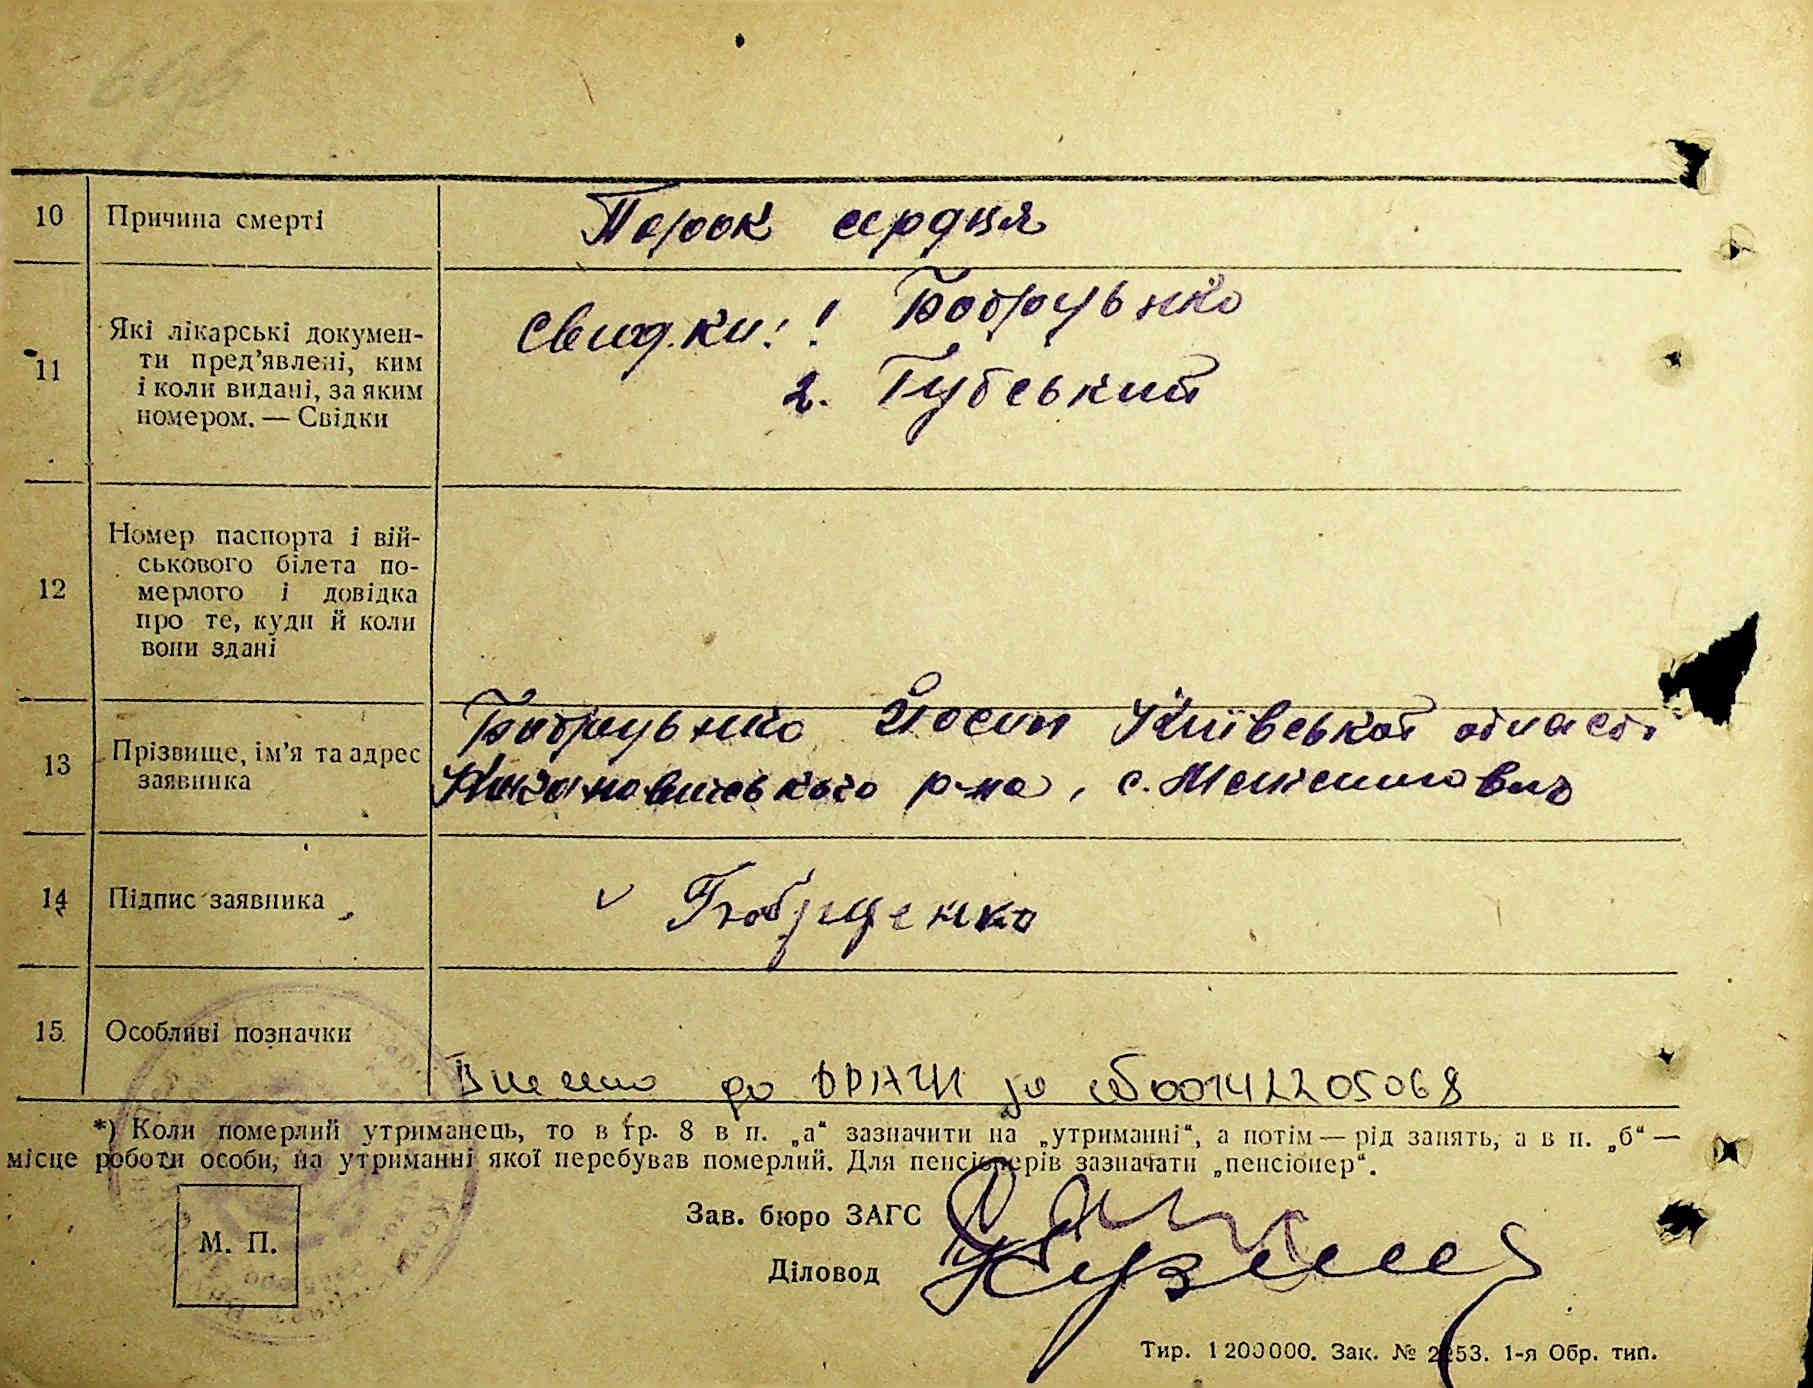 10 Причина смерті Порок сердця
11 Які лікарські докумен-
ти пред’явлені, ким
і коли видані, за яким
номером. — Свідки
Свидки: 1 Бобруенко
2. Губський
12 Номер паспорта і вій-
ськового білета по-
мерлого і довідка
про те, куди й коли
вони здані
13 Прізвище, ім’я та адрес
заявника
Йосип Київської області
р-на, с.
14 Підпис заявника
15 Особливі позначки
Внесено до ДРАЦС 00142205068
*) Коли померлий утриманець, то в гр. 8 в п. „а“ зазначити на „утриманні“, а потім — рід занять, а в п. „б“ —
місце роботи особи, на утриманні якої перебував померлий. Для пенсіонерів зазначати „пенсіонер“.
Зав. бюро ЗАГС
М. П.
Діловод
Тир. 1 200 000. Зак. № 2253. 1-я Обр. тип.